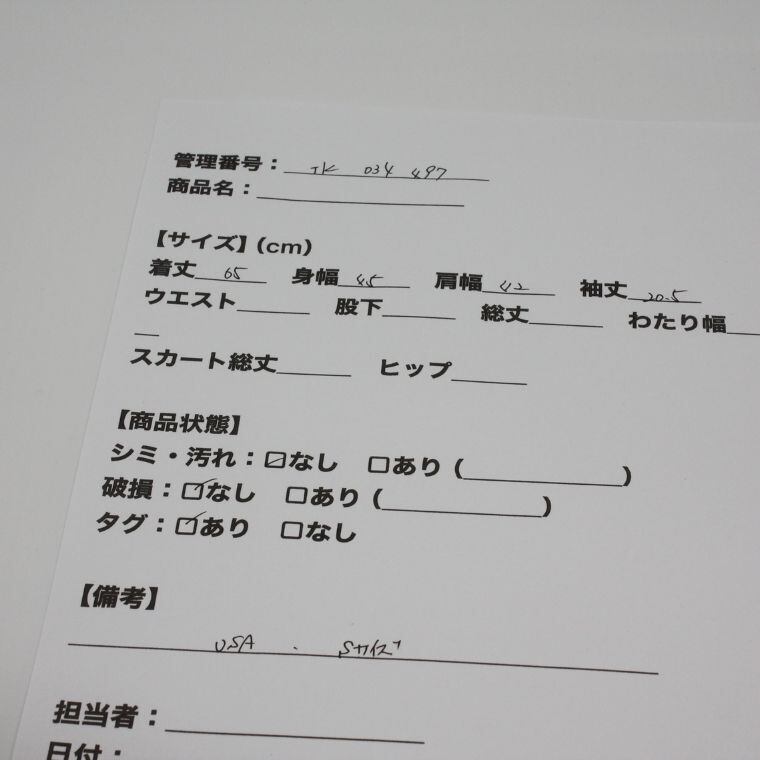 管理番号：IK 034 497
商品名：
【サイズ】(cm)
着丈 65 身幅 45 肩幅 42 袖丈 20.5
ウエスト 股下 総丈 わたり幅
スカート総丈 ヒップ
【商品状態】
シミ・汚れ：☑なし □あり ( )
破損：☑なし □あり ( )
タグ：☑あり □なし
【備考】
USA . Sサイズ
担当者：
日付：